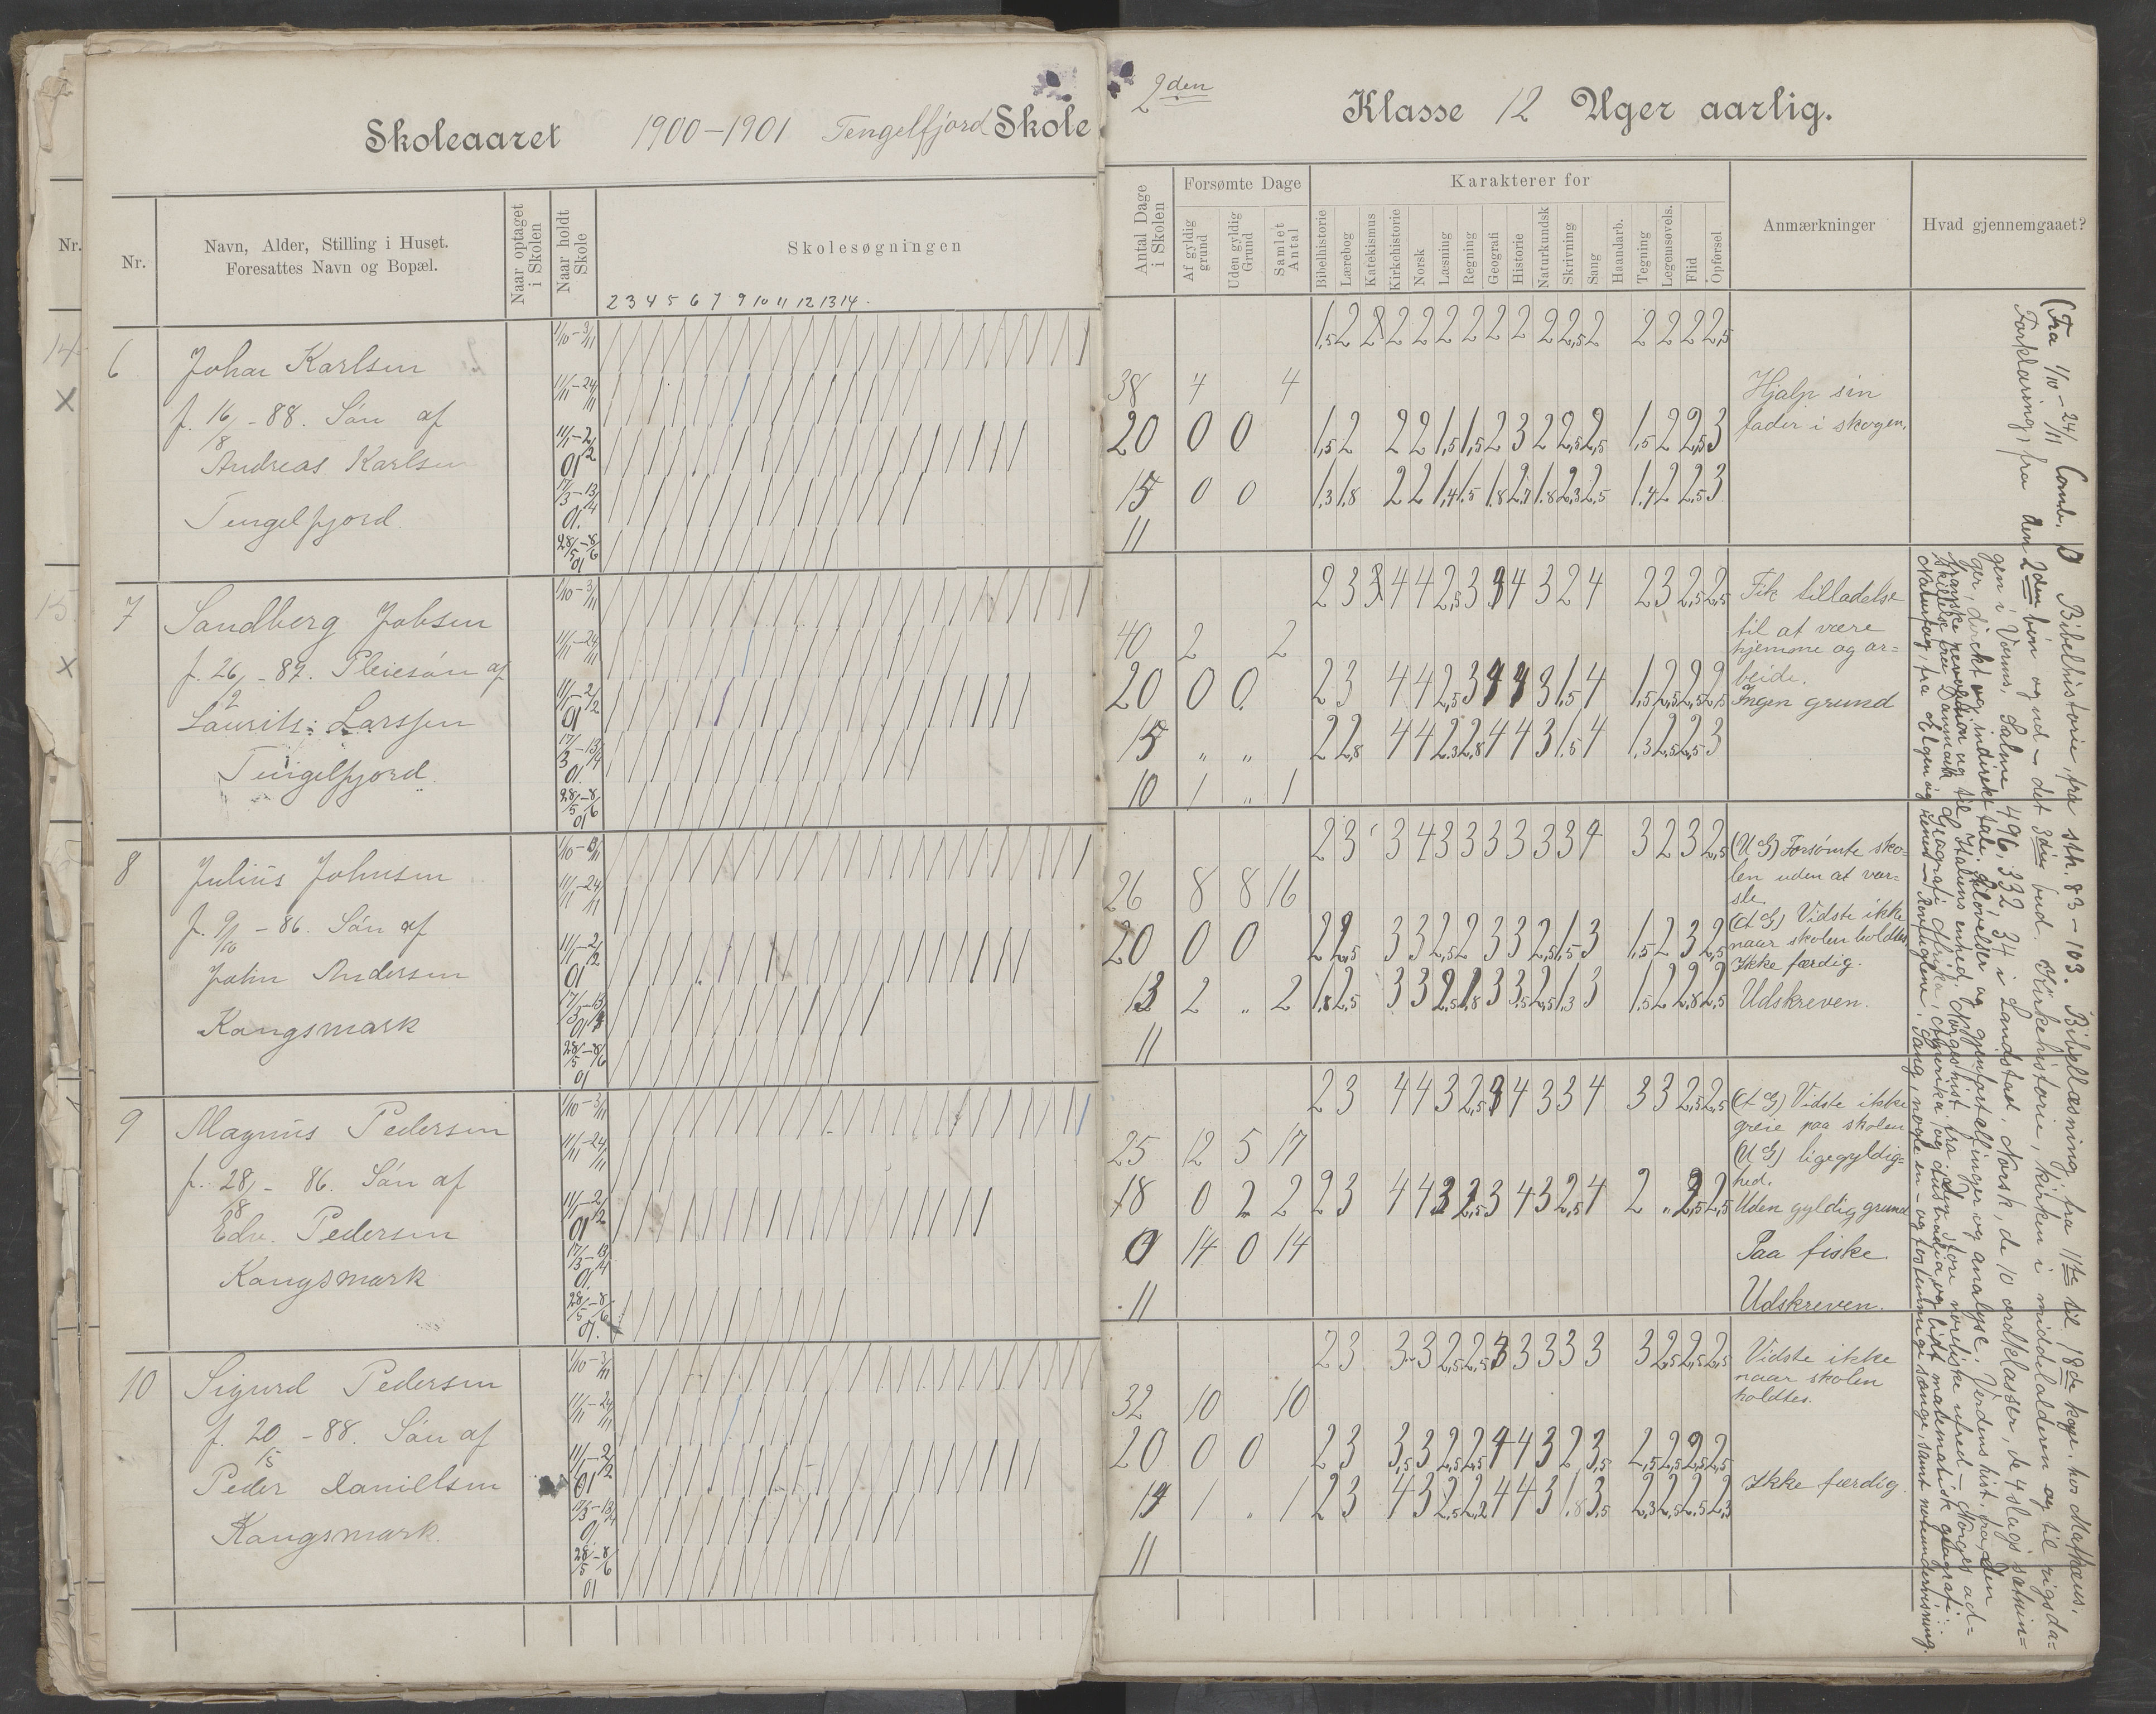 Skoleaaret 1900-1901 Tengelfjord Skole
Nr.
Nr.
Navn, Alder, Stilling i Huset.
Foresattes Navn og Bopæl.
Naar optaget
i Skolen
Naar holdt
Skole
Skolesøgningen
2 3 4 5 6 7 9 10 11 12 13 14
14
X
15
X
6
Johan Karlsen
f. 16/8 - 88. Søn af
Andreas Karlsen
Tengelfjord.
1/10 - 3/11
11/11 - 24/11
11/1 - 2/2 01
17/3 - 13/4 01.
28/5 - 8/6 01
7
Sandberg Jobsen
f. 26/2 - 87. Pleiesøn af
Laurits Larssen
Tengelfjord.
1/10 - 3/11
11/11 - 24/11
11/1 - 2/2 01
17/3 - 13/4 01.
28/5 - 8/6 01
8
Julius Johnsen
f. 9/10 - 86. Søn af
John Andersen
Kongsmark
11/11 - 24/11
11/1 - 2/2 01
28/5 - 8/6 01
9
Magnus Pedersen
f. 28/8 - 86. Søn af
Edv. Pedersen
Kongsmark
1/10 - 3/11
11/11 - 24/11
11/1 - 2/2 01
17/3 - 13/4 01.
28/5 - 8/6 01.
10
Sigurd Pedersen
f. 20/5 - 88. Søn af
Peder Danielsen
Kongsmark.
1/10 - 3/11
11/11 - 24/11
11/1 - 2/2 01
17/3 - 13/4 01
28/5 - 8/6 01
2den Klasse 12 Uger aarlig.
Antal Dage
i Skolen
Forsømte Dage
Af gyldig
grund
Uden gyldig
Grund
Samlet
Antal
Karakterer for
Bibelhistorie
Lærebog
Katekismus
Kirkehistorie
Norsk
Læsning
Regning
Geografi
Historie
Naturkundsk
Skrivning
Sang
Haandarb.
Tegning
Legemsøvels.
Flid
Opførsel
Anmærkninger
Hvad gjennemgaaet?
1,5 2 2 2 2 2 2 2 2 2 2,5 2 2 2 2 2,5
38 4 4
Hjalp sin
fader i skogen.
20 0 0 1,5 2 2 2 1,5 1,5 2 3 2 2,5 2,5 1,5 2 2,5 3
15 0 0 1,3 1,8 2 2 1,4 1,5 1,8 2,7 1,8 2,3 2,5 1,4 2 2,5 3
11
2 3 3 4 4 2,5 3 4 3 2 4 2 3 2,5 2,5
Fik tilladelse
til at være
hjemme og ar-
beide.
Ingen grund
40 2 2
20 0 0 2 3 4 4 2,5 3 3 1,5 4 1,5 2,5 2,5 2,5
15 " " 2 2,8 4 4 2,3 2,8 4 4 3 1,5 4 1,3 2,5 2,5 3
10 1 " 1
2 3 3 4 3 3 3 3 3 3 4 3 2 3 2,5
(U G) Forsømte sko-
len uden at var-
sle.
(A G) Vidste ikke
naar skolen holdtes
Ikke færdig.
Udskreven.
26 8 8 16
20 0 0 2 2,5 3 3 2,5 2 3 3 2,5 1,5 3 1,5 2 3 2,5
13 2 " 2 1,8 2,5 3 3 2,5 1,8 3 3,5 2,5 1,3 3 1,5 2 2,8 2,5
11
2 3 4 4 3 2,5 4 3 3 4 3 3 2,5 2,5
(A G) Vidste ikke
greie paa skolen
(U G) ligegyldig-
hed.
Uden gyldig grund
Paa fiske.
Udskreven.
25 12 5 17
18 0 2 2 2 3 4 4 3 2,5 3 4 3 2,5 4 2 " 2,5 2,5
0 14 0 14
11
2 3 3 3 2,5 2,5 3 3 3 3 3 3 2,5 2,5 2,5
Vidste ikke
naar skolen
holdtes.
Ikke færdig.
32 10 10
20 0 0 2 3 3,5 3 2,5 2,5 4 4 3 2 3,5 2,5 2,5 2,5 2,5
14 1 " 1 2 3 4 3 2,5 2,2 4 4 3 1,8 3,5 2,3 2,5 2,5 2,3
11
(Fra 1/10 - 24/11 Comb.) Bibelhistorie, fra sth. 83 - 103. Bibellæsning, fra 11te til 18de kap. hos Mathæus.
Forklaring, fra den 2den bøn og ned - det 3die bud. Kirkehistorie, kirken i middelalderen og til rigsda-
gen i Worms. Salme 496, 332, 34 i Landstad. Norsk, de 10 ordklasser, de 4 slags sætnin-
ger, direkt og indirekt tale. Stiløvelser og gjenfortællinger og analyse. Verdens hist. fra den
franske revolution og til Italiens enhed. Norgeshist. fra den store nordiske ufred - Norges ad-
skillelse fra Danmark. Geografi Afrika, Amerika og Australia og lidt matematisk geografi.
Naturfag, fra Elgen og Renen - Rovfuglene. Sang, nogle en- og tostemmige sange, samt notundervisning.